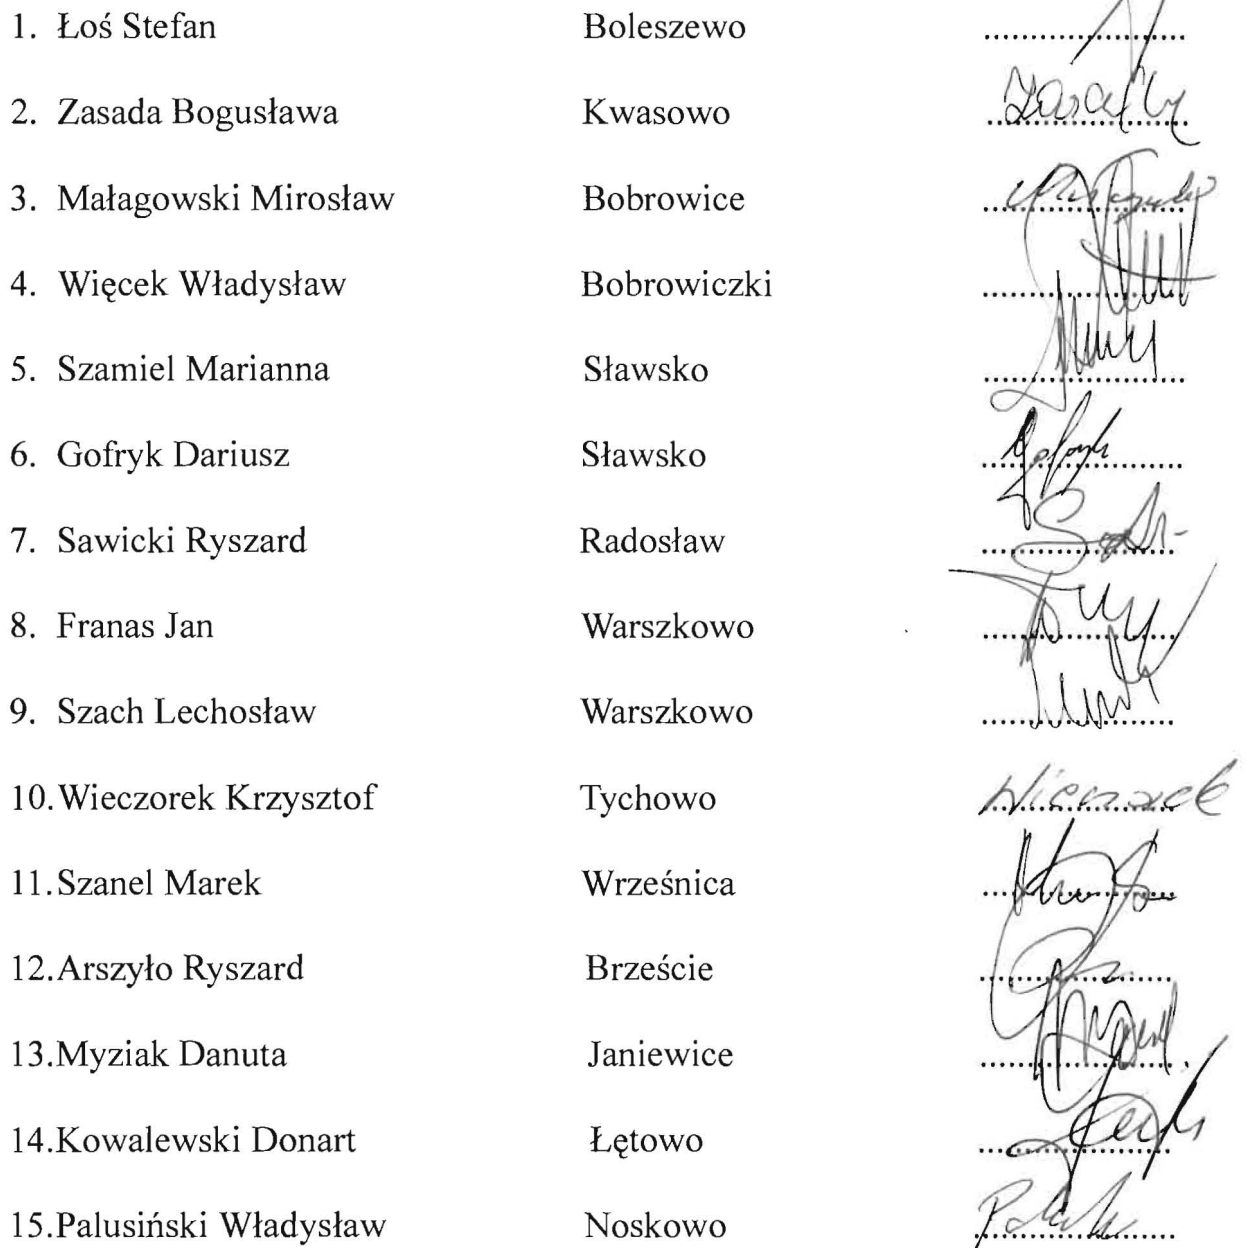 1. Łoś Stefan Boleszewo ....................
2. Zasada Bogusława Kwasowo ....................
3. Małagowski Mirosław Bobrowice ....................
4. Więcek Władysław Bobrowiczki ....................
5. Szamiel Marianna Sławsko ....................
6. Gofryk Dariusz Sławsko ....................
7. Sawicki Ryszard Radosław ....................
8. Franas Jan Warszkowo ....................
9. Szach Lechosław Warszkowo ....................
10. Wieczorek Krzysztof Tychowo ....................
11. Szanel Marek Wrześnica ....................
12. Arszyło Ryszard Brzeście ....................
13. Myziak Danuta Janiewice ....................
14. Kowalewski Donart Łętowo ....................
15. Palusiński Władysław Noskowo ....................